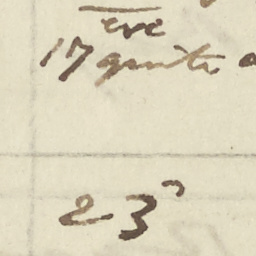 eve
17 quite
23